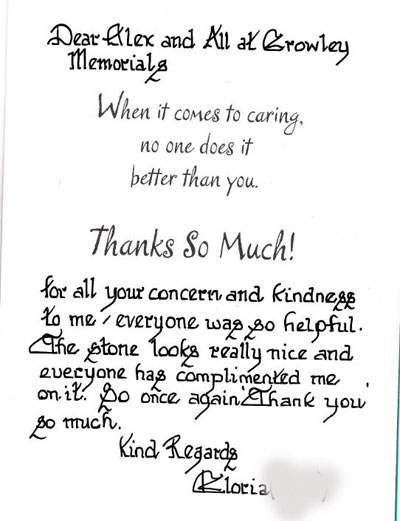 Dear Alex and All at Crowley
Memorials
When it comes to caring,
no one does it
better than you.
Thanks So Much!
for all your concern and kindness
to me, everyone was so helpful.
The stone looks really nice and
everyone has complimented me
on it. So once again 'Thank you'
so much.
Kind Regards
Gloria